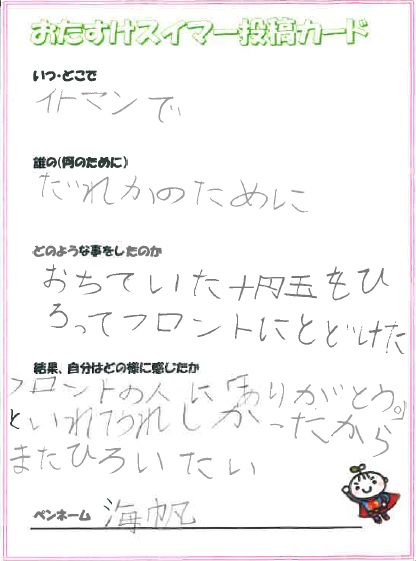 おたすけスイマー投稿カード
いつ・どこで
イトマンで
誰の(何のために)
だれかのために
どのような事をしたのか
おちていた十円玉をひ
ろってフロントにとどけた
結果、自分はどの様に感じたか
フロントの人に「ありがとう。」
といれてうれしかったから
またひろいたい
ペンネーム 海帆